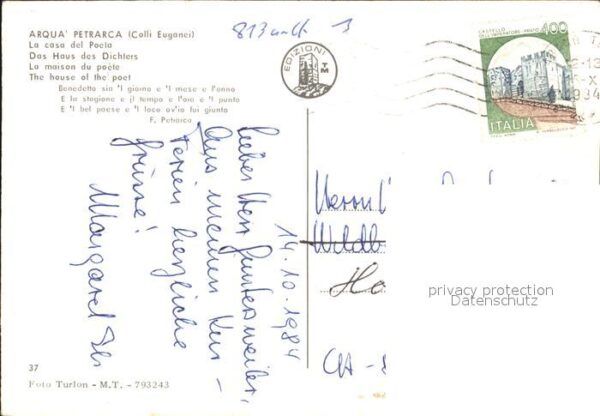 813
ARQUA' PETRARCA (Colli Euganei)
La casa del Poeta
Das Haus des Dichters
La maison du poète
The house of the poet
Benedetto sia 'l giorno e 'l mese e l'anno
E la stagione e jl tempo e l'ora e 'l punto
E 'l bel paese e 'l loco ov'io fui giunto
F. Petrarca
EDIZIONI
TM
CASTELLO
400
ITALIA
1984
14.10.1984
Lieber Herr Guntersweiler,
Aus meinen Kur-
ferien herzliche
Grüsse!
Margaret
Herrn
Ho
CH-8
privacy protection
Datenschutz
37
Foto Turlon - M.T. - 793243